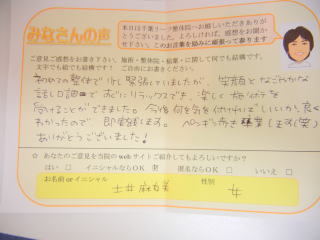 みなさんの声
本日は千葉リーフ整体院へお越しいただきありが
とうございました。よろしければ、感想をお聞か
せ下さい。このお言葉を励みに頑張って参ります
ご意見ご感想をお書き下さい。施術・整体院・結果・に関して何でも結構です。
文字でも絵でも結構です! ご自由にお書きください。
初めての整体で少し緊張していましたが、笑顔となごやかな
話し口調で すぐにリラックスでき、楽しく施術を
受けることができました。今後何を気を付ければいいか、良く
わかったので 即実践します。 ペッキがき 卒業します(笑)
ありがとうございました!
☆ あなたのご意見を当院のwebサイトご紹介してもよろしいですか?
はい □ イニシャルならOK 匿名ならOK □ いいえ □
お名前 or イニシャル 性別
土井 麻 美 女